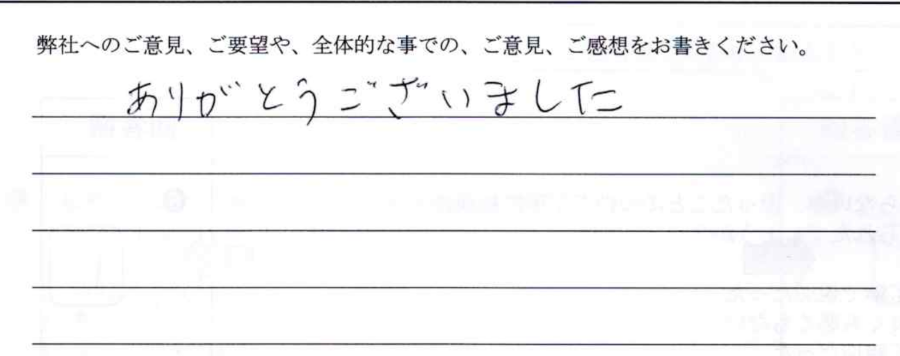 弊社へのご意見、ご要望や、全体的な事での、ご意見、ご感想をお書きください。
ありがとうございました